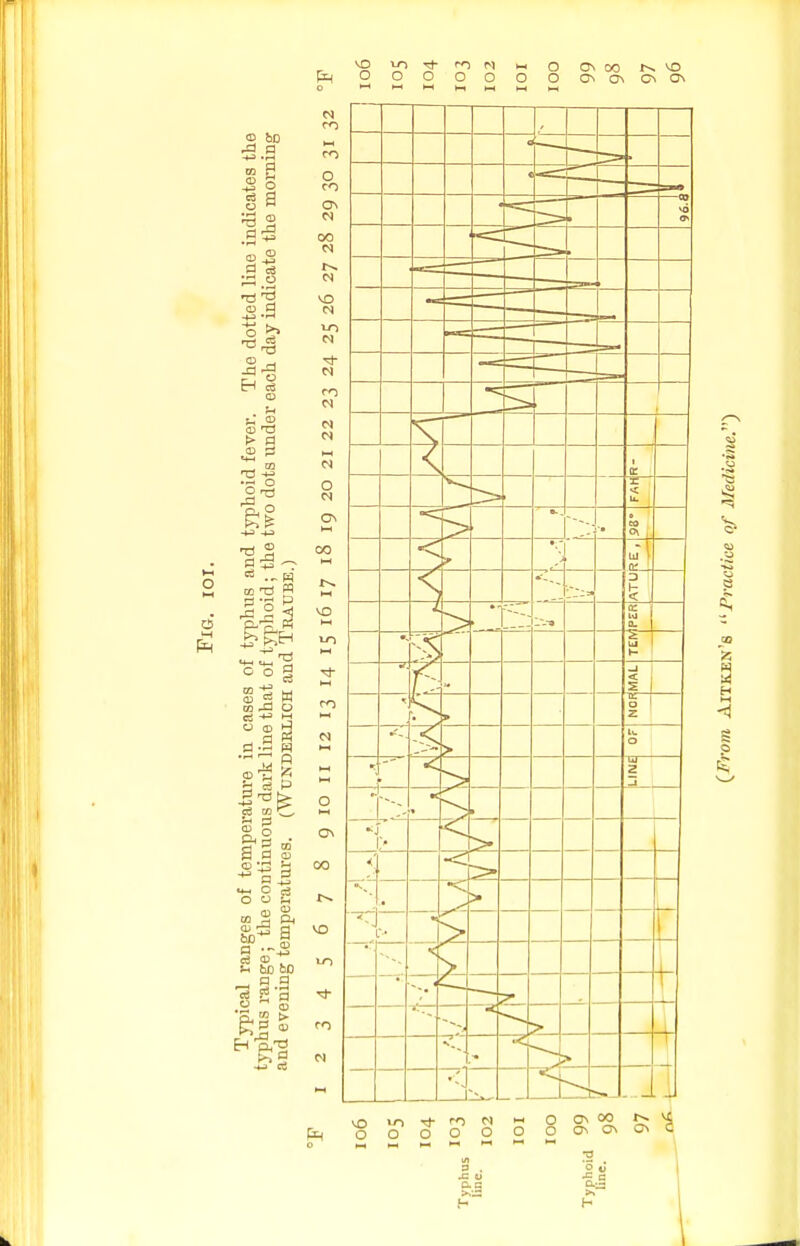 FIG. 101.
Typical ranges of temperature in cases of typhus and typhoid fever. The dotted line indicates the
typhus range; the continuous dark line that of typhoid; the two dots under each day indicate the morning
and evening temperatures. (WUNDERLICH and TRAUBE.)
°F 1 2 3 4 5 6 7 8 9 10 11 12 13 14 15 16 17 18 19 20 21 22 23 24 25 26 27 28 29 30 31 32 °F
106 106
105 105
104 104
Typhus line. 103 103
102 102
101 101
100 100
Typhoid line. 99 99
98 98
LINE OF NORMAL TEMPERATURE, 98° FAHR-
97 97
96.8
96 96
(From AITKEN'S "Practice of Medicine.")